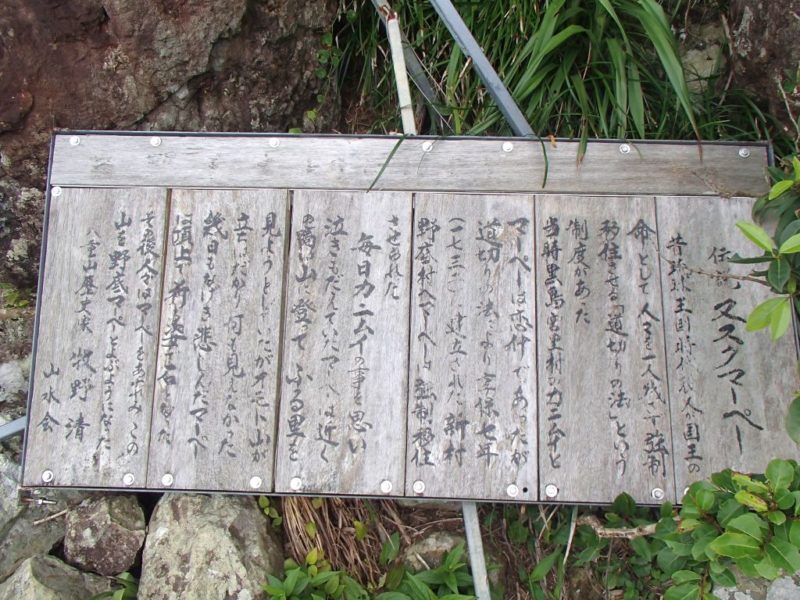 伝説 ヌスクマーペー
昔琉球王国時代 国王の
命として人々を一人残らず強制
移住させる「道切りの法」という
制度があった
当時黒島宮里村のカニムイと
マーペーは恋仲であったが
道切りの法により 七年
(一七三二)建立された新村
野底村へマーペーは強制移住
させられた
毎日カニムイの事を思い
泣きもだえていたマーペーは近く
の高い山に登ってふる里を
見ようとしていたがオモト山が
立ちはだかり何も見えなかった
幾日もなげき悲しんだマーペー
は頂上で祈る姿で石と
その後人々はマーペーを この
山を野底マーペーとよぶようになった
八重山歴史家 牧野清
山水会